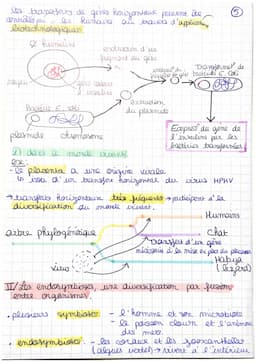 Les transferts de gènes horizontaux peuvent être
par les humains au travers d'applications
biotechnologiques
5
¢ humaine
extraction d'un
fragment de gène
noyau
gène codant
l'insuline
Transformat° de
bactérie E. Coli
Bactérie E. coli
extraction
du plasmide
plasmide chromosome
Exprès° du gène de
l'insuline par les
bactéries transformées
2) dans le monde vivant
EX:
- le placenta a une origine virale
issu d'un transfert horizontal du virus HPHV
→ transferts horizontaux très fréquents → participent à la
diversification du monde vivant.
Humains
arbre phylogénétique
Chat
transfert d'un gène
nécessaire à la mise en place du placenta
virus
Mabuya
(lézard)
II/ Les endosymbioses, une diversification par fusion
entre organismes.
• plusieurs symbioses - l'homme et son microbiote
- le poisson clown et l'anémone
des mers.
• endosymbiose - les coraux et les zooxanthelles
(algues vertes) → vivent à l'intérieur